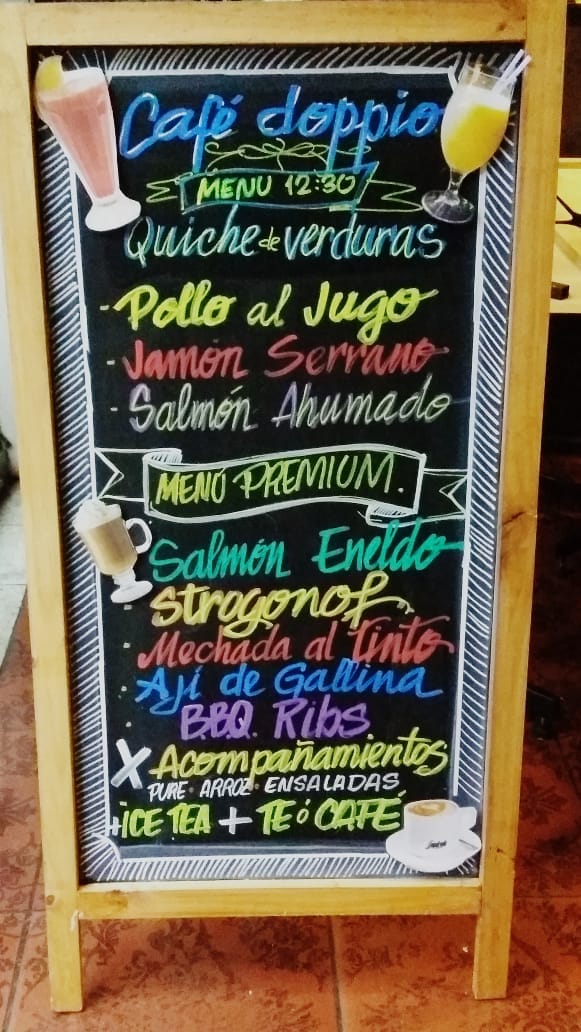 Café doppio
MENU 12:30
Quiche de verduras
- Pollo al Jugo
- Jamón Serrano
- Salmón Ahumado
MENÚ PREMIUM.
Salmón Eneldo
Strogonof
Mechada al tinto
Ají de Gallina
B.B.Q. Ribs
X Acompañamientos
PURE · ARROZ · ENSALADAS
+ ICE TEA + TE ó CAFÉ